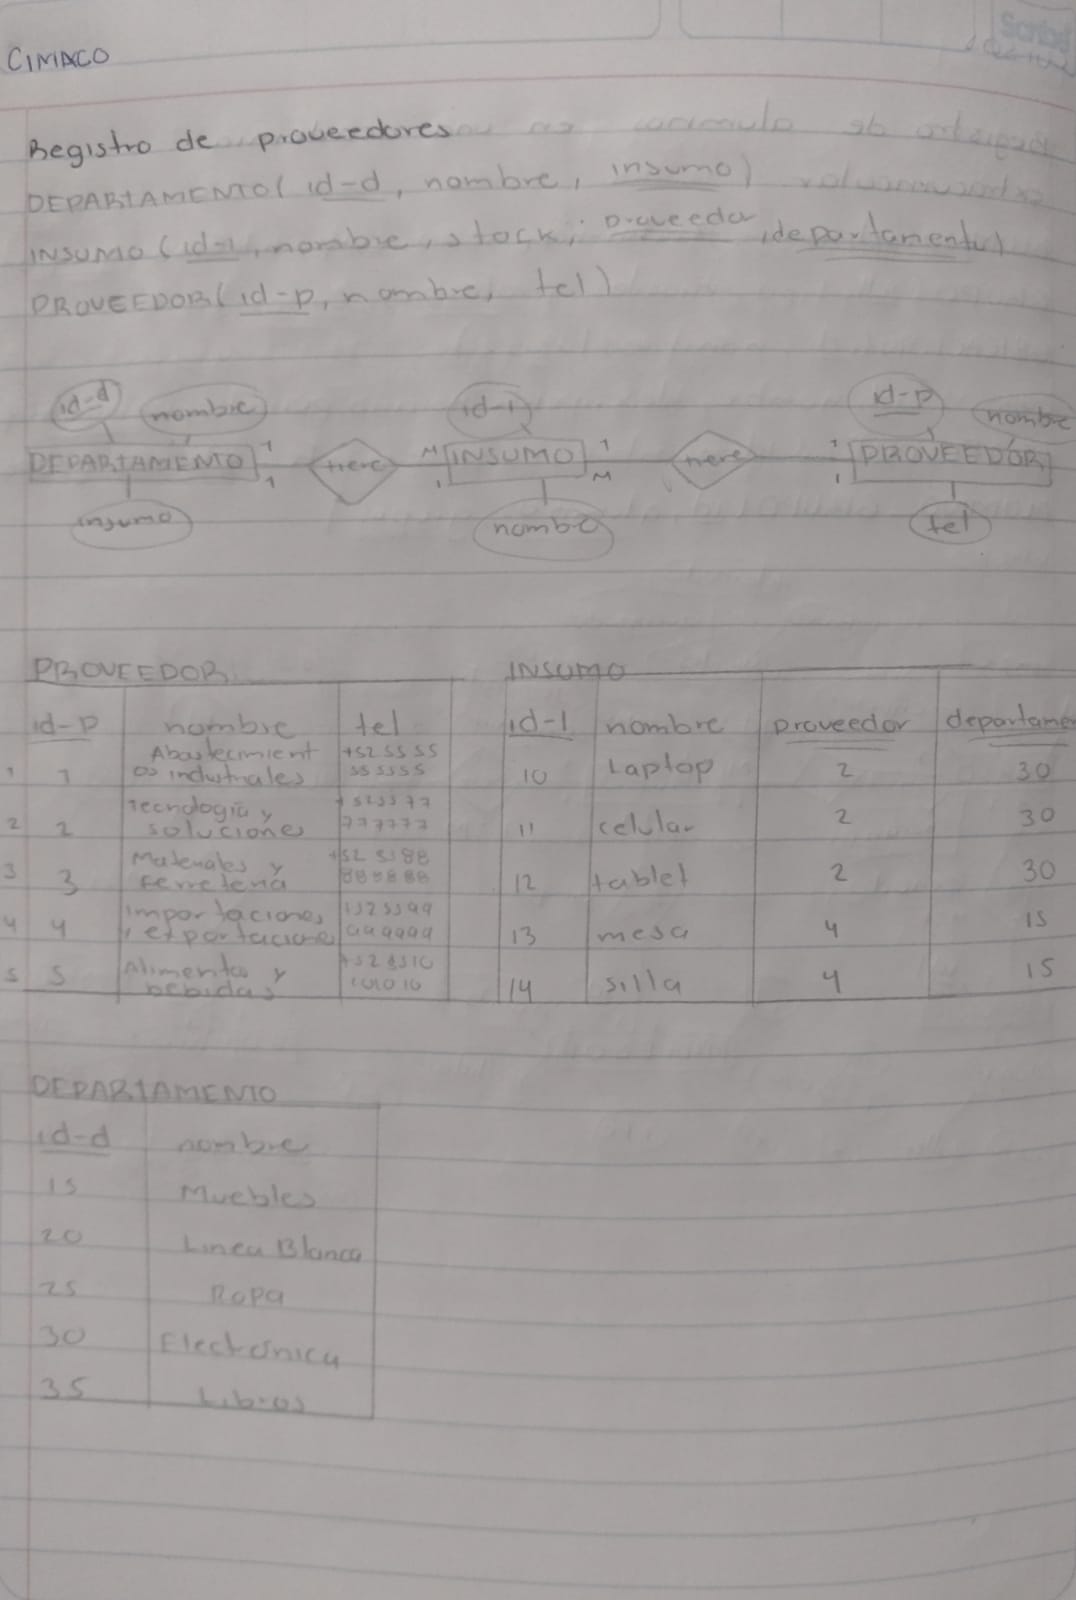 Scribe
CIMACO
Registro de proveedores
DEPARTAMENTO( id-d, nombre, insumo)
INSUMO (id-i, nombre, stock, proveedor, departamento)
PROVEEDOR( id-p, nombre, tel)
id-d nombre id-i id-p nombre
DEPARTAMENTO 1 1 tiene M 1 INSUMO 1 M tiene 1 1 PROVEEDOR
insumo nombre tel
PROVEEDOR
id-p nombre tel
1 1 Abastecimient os industriales +52 55 55 555555
2 2 Tecnologia y soluciones +525577 777777
3 3 Materiales y Ferreteria +52 5588 888888
4 4 importaciones, exportacione 999999
5 5 Alimentos y bebidas 101010
INSUMO
id-I nombre proveedor departame
10 Laptop 2 30
11 celular 2 30
12 tablet 2 30
13 mesa 4 15
14 silla 4 15
DEPARTAMENTO
id-d nombre
15 Muebles
20 Linea Blanca
25 Ropa
30 Electronica
35 Libros